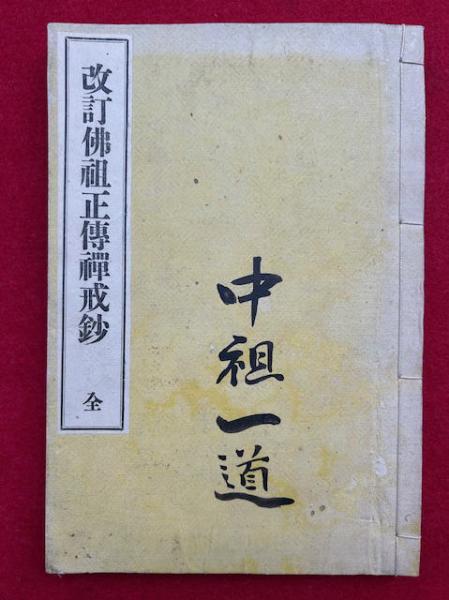 改訂佛祖正傳禪戒鈔 全
中祖一道